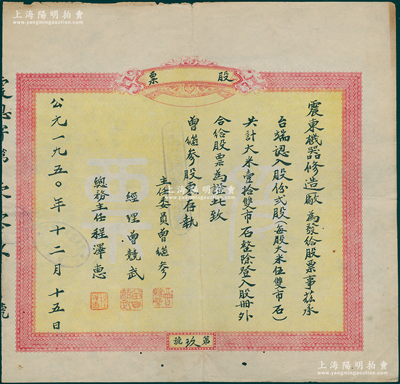 上海阳明拍卖
www.yangmingauction.com
股票
震東機器修造厰為發給股票事茲承
台端認入股份弍股(每股大米伍雙市石)
共計大米壹拾雙市石整除登入股册外
合給股票為證此致
曾繼參股東存執
主任委員曾繼參
經理曾競武
總務主任程澤惠
公元一九五〇年十二月十五日
第玖號